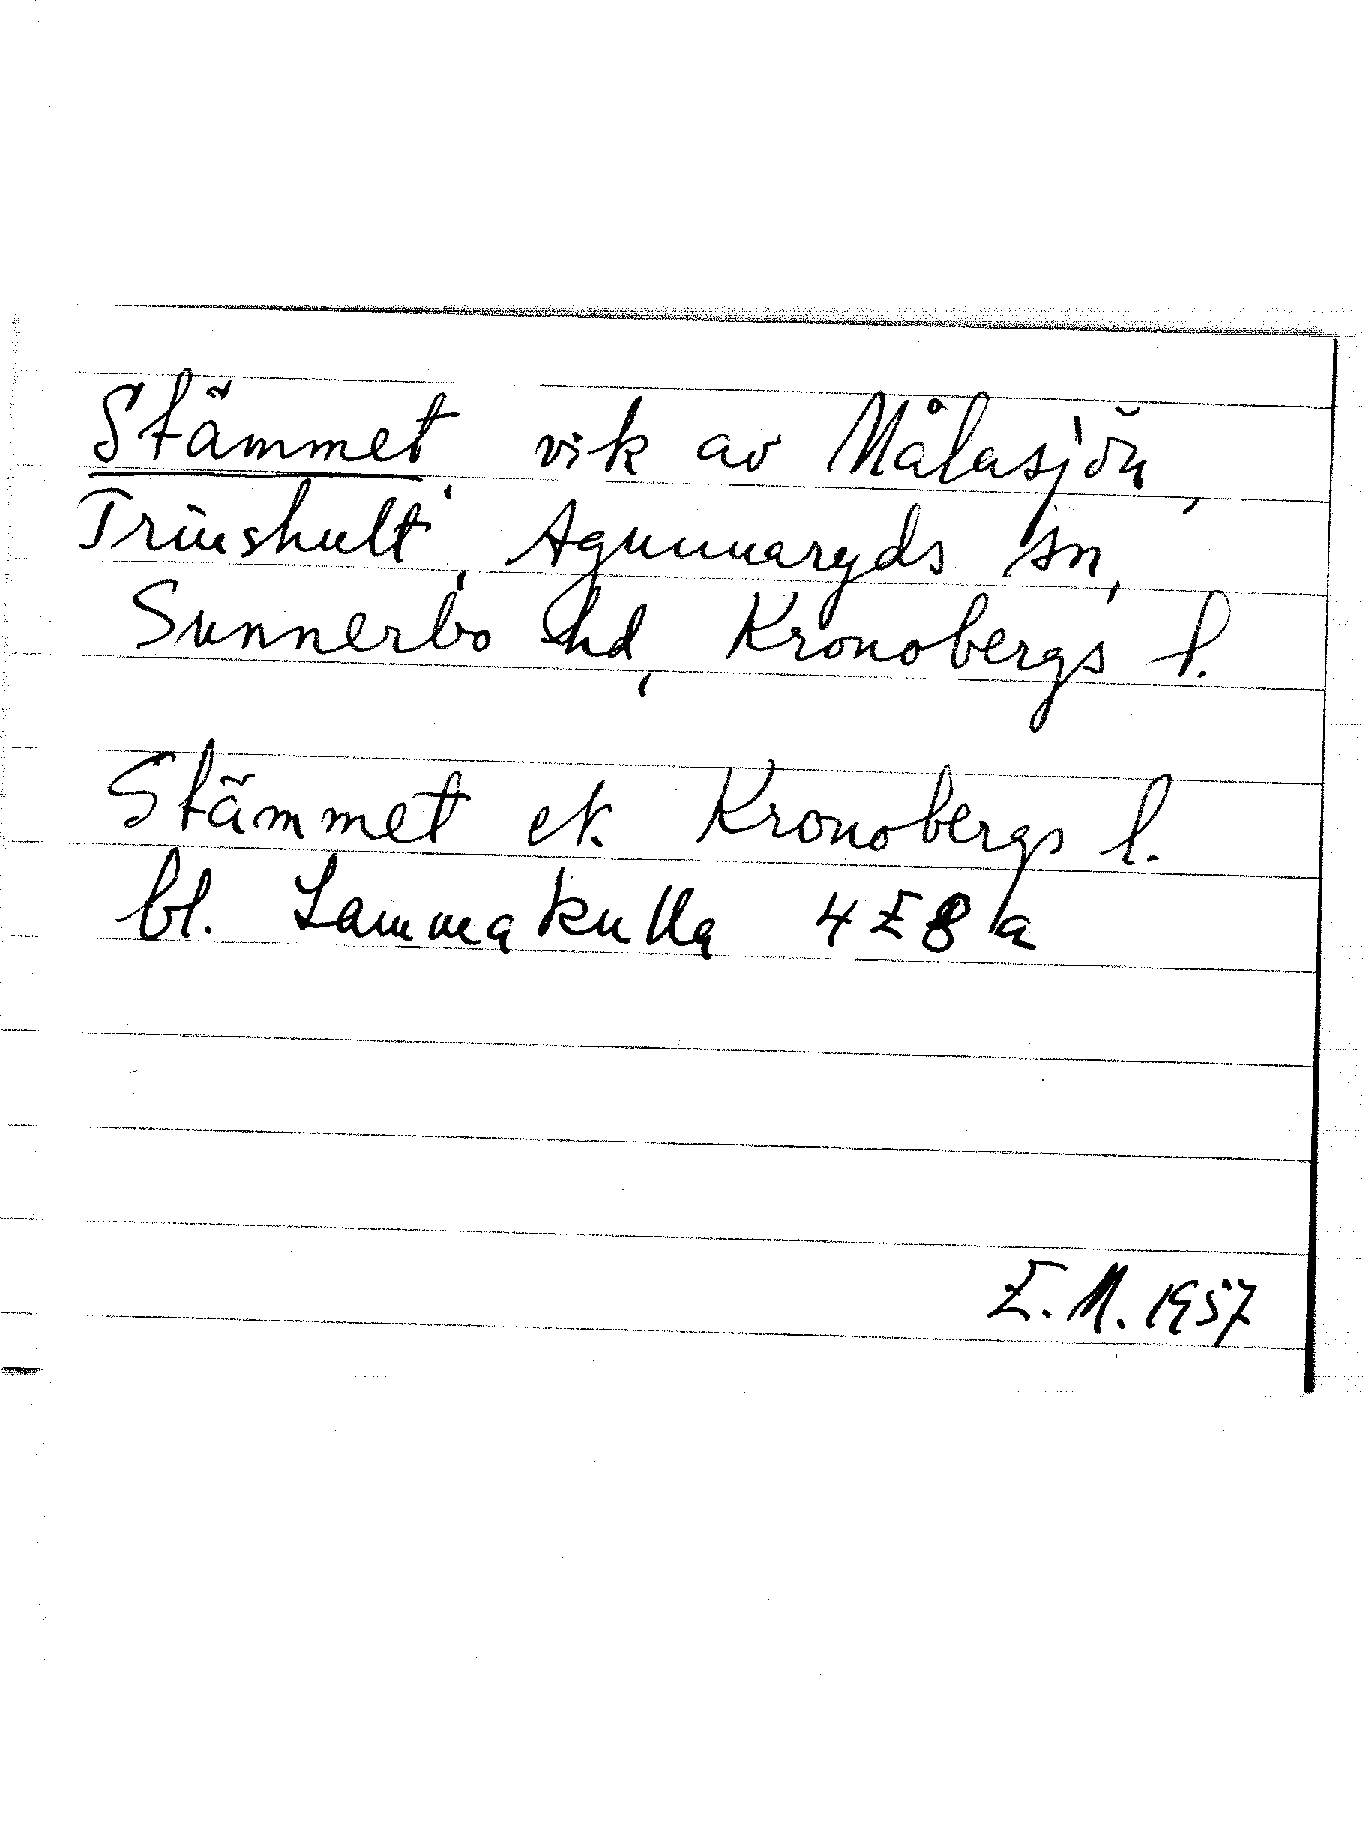 Stämmet vik av Målasjön,
Trinshult, Agunnaryds sn,
Sunnerbo hd, Kronobergs l.
Stämmet ek. Kronobergs l.
bl. Lammakulla 4E8a
E.M. 1957